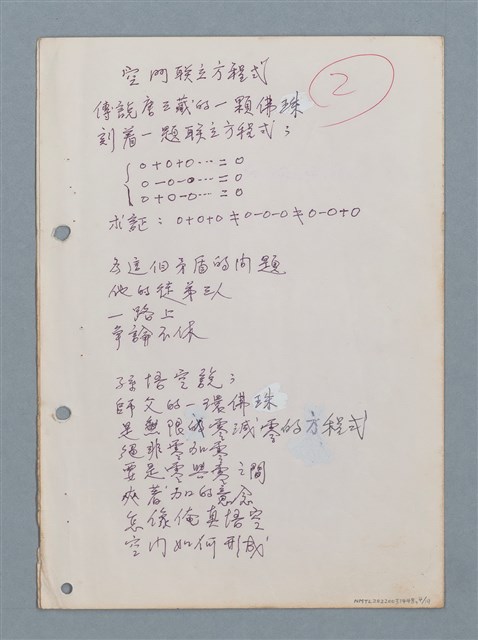 空門联立方程式
2
傳說唐三藏的一顆佛珠
刻着一題联立方程式；
0+0+0…=0
0-0-0…=0
0+0-0…=0
求証：0+0+0≠0-0-0≠0-0+0
為這個矛盾的问題
他的徒弟三人
一路上
爭論不休
孫悟空說；
師父的一環佛珠
是無限的零減零的方程式
絕非零加零
要是零與零之間
夾著加的意念
怎像俺真悟空
空门如何形成